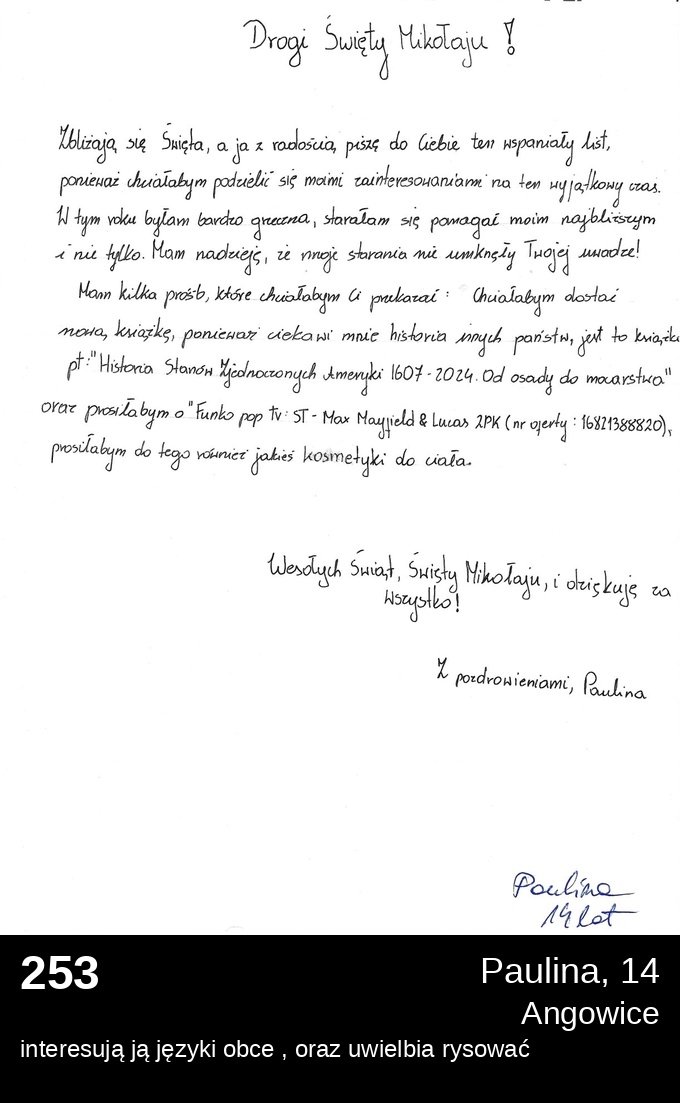 Drogi Święty Mikołaju !
Zbliżają się Święta, a ja z radością piszę do Ciebie ten wspaniały list,
ponieważ chciałabym podzielić się moimi zainteresowaniami na ten wyjątkowy czas.
W tym roku byłam bardzo grzeczna, starałam się pomagać moim najbliższym
i nie tylko. Mam nadzieję, że moje starania nie umknęły Twojej uwadze!
Mam kilka próśb, które chciałabym Ci przekazać : Chciałabym dostać
nową książkę, ponieważ ciekawi mnie historia innych państw, jest to książka
pt:"Historia Stanów Zjednoczonych Ameryki 1607-2024. Od osady do mocarstwa"
oraz prosiłabym o "Funko pop tv: ST- Max Mayfield & Lucas 2PK (nr oferty : 16821388820),
prosiłabym do tego również jakieś kosmetyki do ciała.
Wesołych Świąt, Święty Mikołaju, i dziękuję za
wszystko!
Z pozdrowieniami, Paulina
Paulina
14 lat
253
Paulina, 14
Angowice
interesują ją języki obce , oraz uwielbia rysować